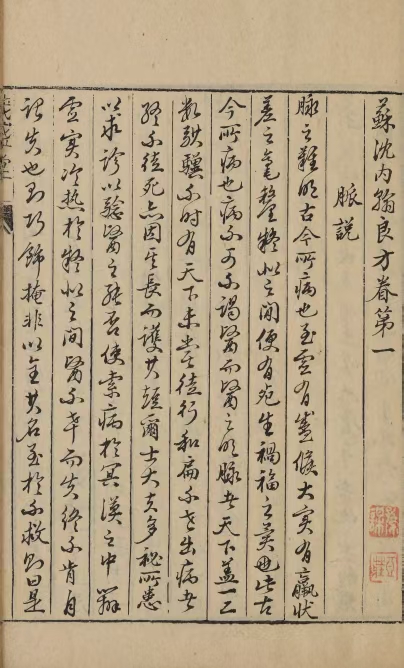 蘇沈内翰良方卷第一
脈説
脉之難明古今所病也至虛有盛候大實有羸狀
差之毫釐疑似之間便有死生禍福之異也此古
今所病也病不可不謁醫而醫之明脉者天下蓋一二
數騏驥不時有天下未嘗徒行和扁不世出病者
終不徒死亦因其長而護其短爾士大夫多祕所患
以求診以驗醫之能否使索病於冥漠之中辯
虛實冷熱於疑似之間醫不幸而失終不肯自
謂失也則巧飾掩非以全其名至於不救則曰是